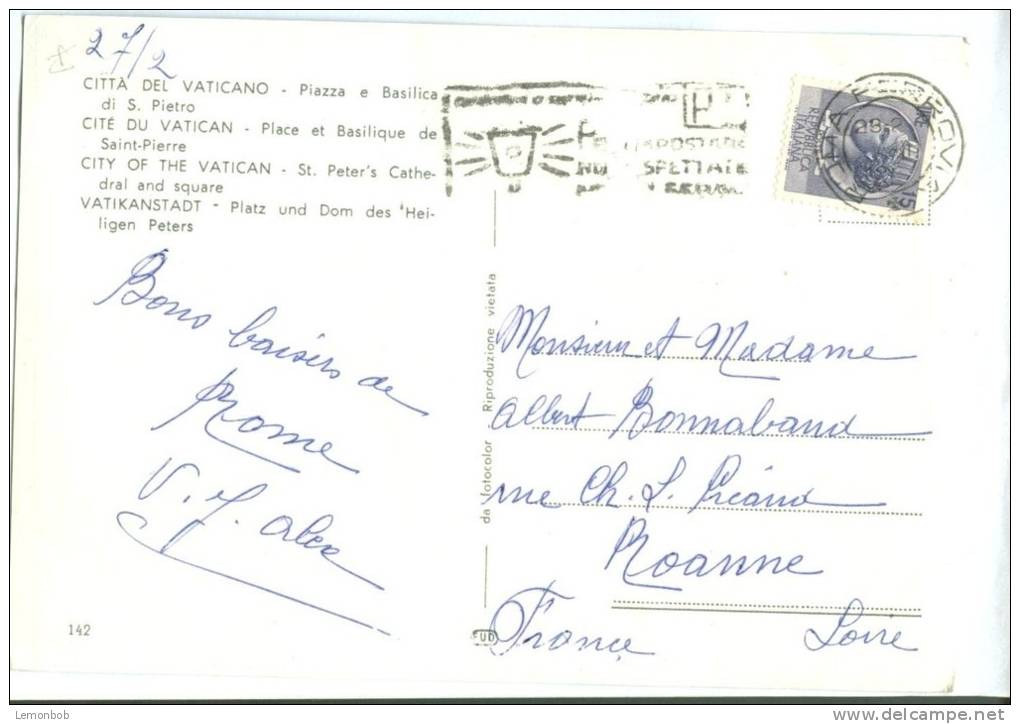 27/2
CITTÀ DEL VATICANO - Piazza e Basilica
di S. Pietro
CITÉ DU VATICAN - Place et Basilique de
Saint-Pierre
CITY OF THE VATICAN - St. Peter's Cathe-
dral and square
VATIKANSTADT - Platz und Dom des 'Hei-
ligen Peters
Bons baisers de
Rome
V. J. Alex
142
da fotocolor Riproduzione vietata
REPUBBLICA
ITALIANA
15
ROMA FERROVIA
Monsieur et Madame
Albert Bonnabaud
rue Ch. L.
Roanne
France Loire
Lemonbob